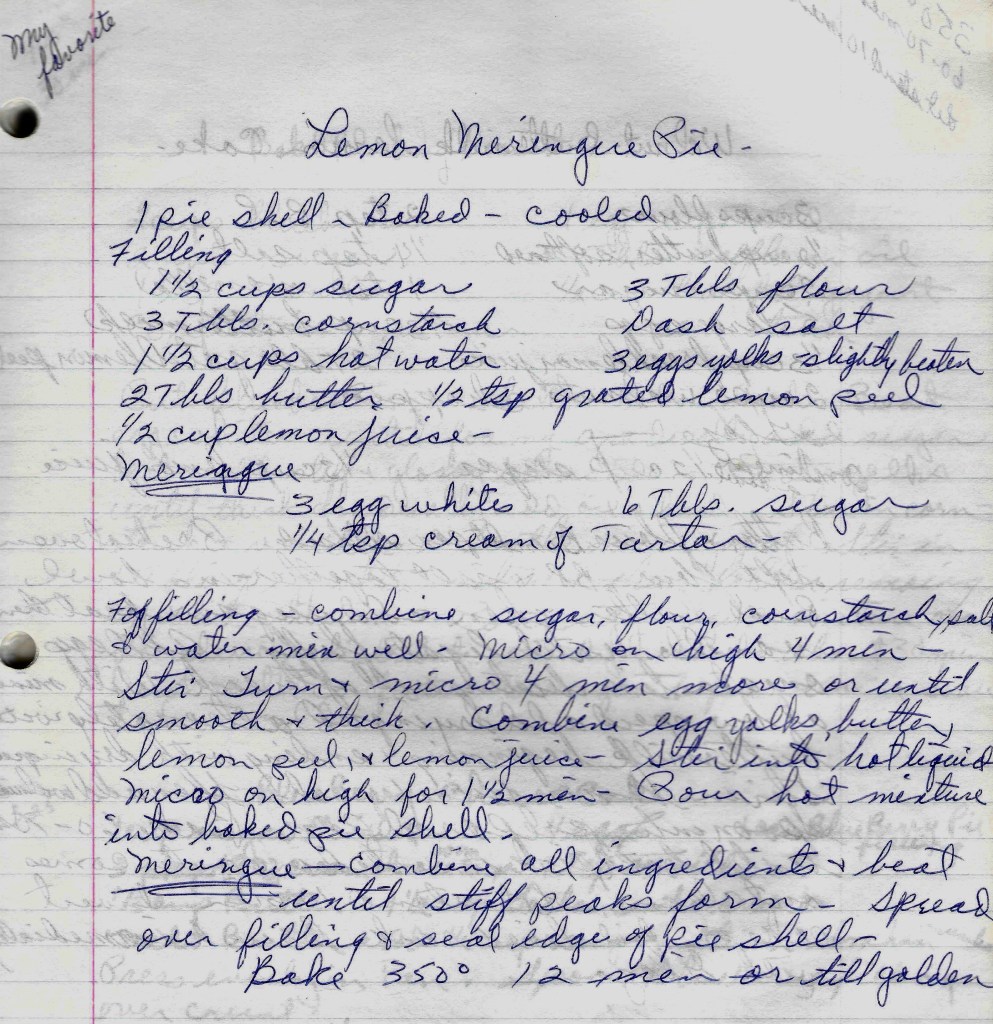 My
favorite
Lemon Meringue Pie -
1 pie shell - Baked - cooled
Filling
1 1/2 cups sugar 3 Tbls flour
3 Tbls. cornstarch Dash salt
1 1/2 cups hot water 3 eggs yolks - slightly beaten
2 Tbls butter 1/2 tsp grated lemon peel
1/2 cup lemon juice -
Meringue
3 egg whites 6 Tbls. sugar
1/4 tsp cream of Tartar -
For filling - combine sugar, flour, cornstarch, salt
& water mix well - Micro on high 4 min -
Stir Turn & micro 4 min more or until
smooth & thick. Combine egg yolks, butter,
lemon peel, & lemon juice - Stir into hot liquid
Micro on high for 1 1/2 min - Pour hot mixture
into baked pie shell.
Meringue - combine all ingredients & beat
until stiff peaks form - Spread
over filling & seal edge of pie shell -
Bake 350° 12 min or till golden